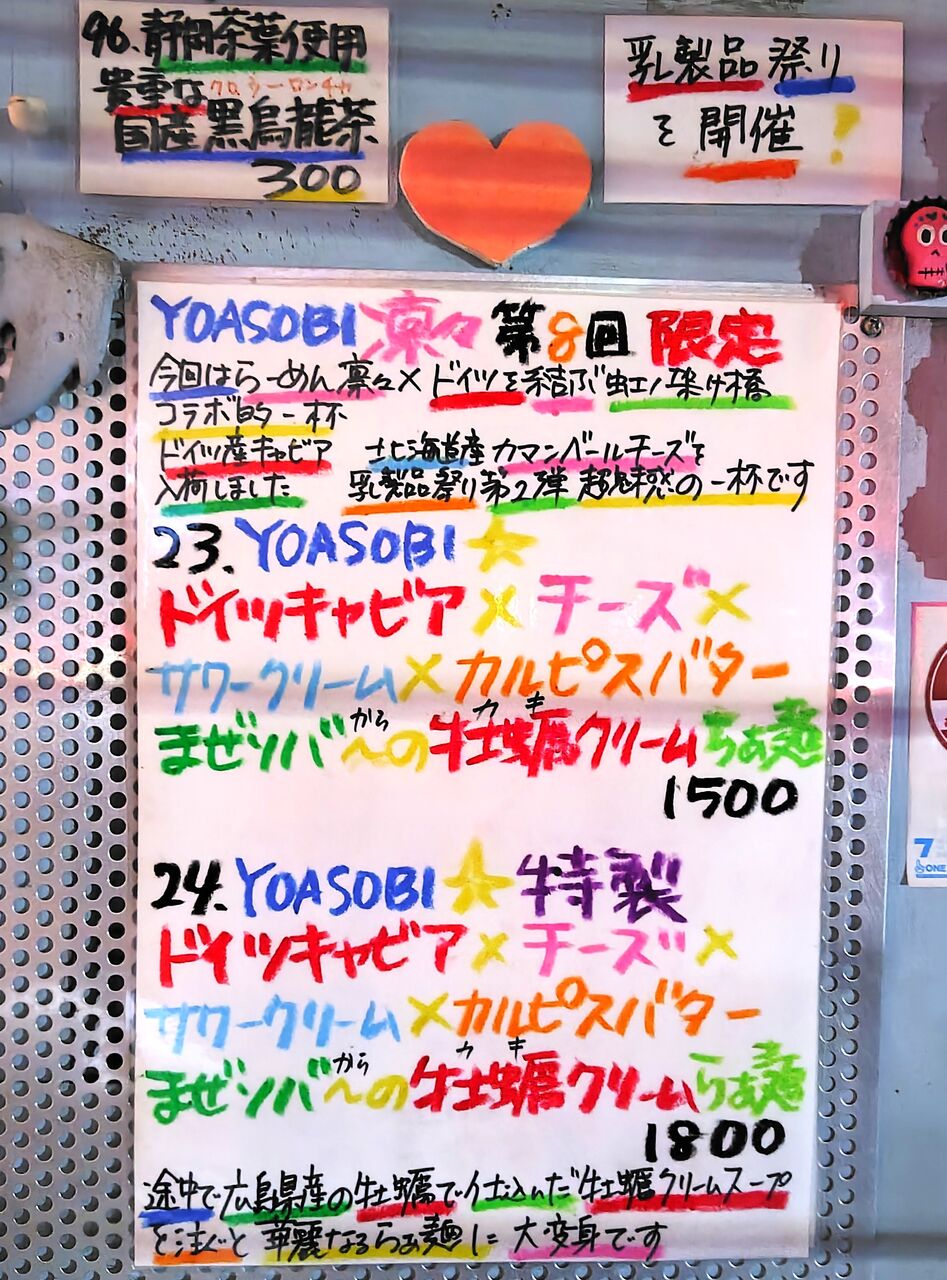 96.静岡茶葉使用
貴重な クロウーロンチャ
国産黒烏龍茶
300
乳製品祭り
を開催!
YOASOBI凛々 第8回 限定
今回はらーめん凛々×ドイツを結ぶ虹ノ架け橋
コラボ的一杯
ドイツ産キャビア 北海道産カマンベールチーズを
入荷しました 乳製品祭り第2弾 超魅惑の一杯です
23.YOASOBI☆
ドイツキャビア×チーズ×
サワークリーム×カルピスバター
から カキ
まぜソバ〜の牡蠣クリームらぁ麺
1500
24.YOASOBI☆特製
ドイツキャビア×チーズ×
サワークリーム×カルピスバター
から カキ
まぜソバ〜の牡蠣クリームらぁ麺
1800
途中で広島県産の牡蠣で仕込んだ牡蠣クリームスープ
を注ぐと華麗なるらぁ麺に大変身です
7
ONE